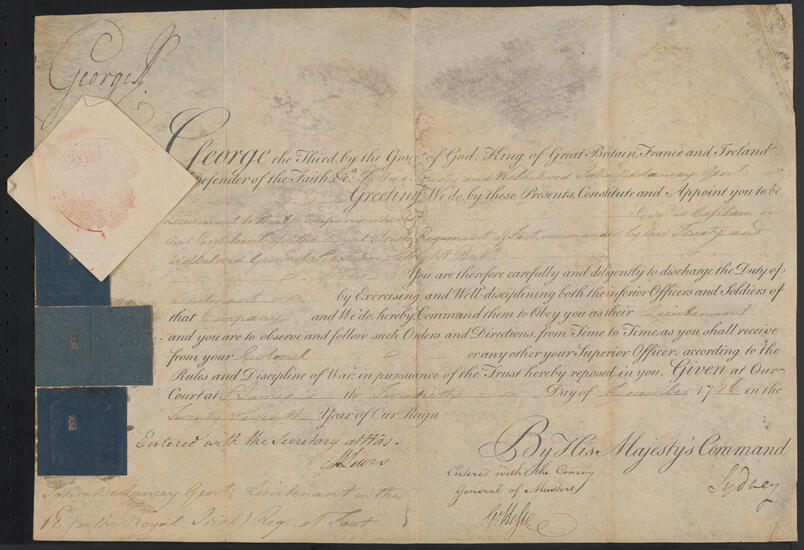 George R
George the Third, by the Grace of God, King of Great Britain, France and Ireland
Defender of the Faith, &c.a To Our Trusty and Welbeloved John Delancey Gent.
Greeting We do, by these Presents, Constitute and Appoint you to be
Lieutenant to that Company whereof Esq.r is Captain in
Our Eighteenth or the Royal Irish Regiment of Foot, commanded by Our Trusty and
Welbeloved General Sir John Sebright Bar.t
You are therefore carefully and diligently to discharge the Duty of
Lieutenant by Exercising and Well-disciplining both the inferior Officers and Soldiers of
that Company and We do hereby Command them to Obey you as their Lieutenant
and you are to observe and follow such Orders and Directions, from Time to Time, as you shall receive
from your Colonel or any other your Superior Officer, according to the
Rules and Discipline of War, in pursuance of the Trust hereby reposed in you. Given at Our
Court at St. James's the Twentieth Day of December 1786 in the
Twenty Seventh Year of Our Reign
Entered with the Secretary at War.
M Lewis
By His Majesty's Command
Sydney
Entered with the Comm.y
General of Musters
John Delancey Gent: Lieutenant in the
18 (or the Royal Irish) Reg.t of Foot